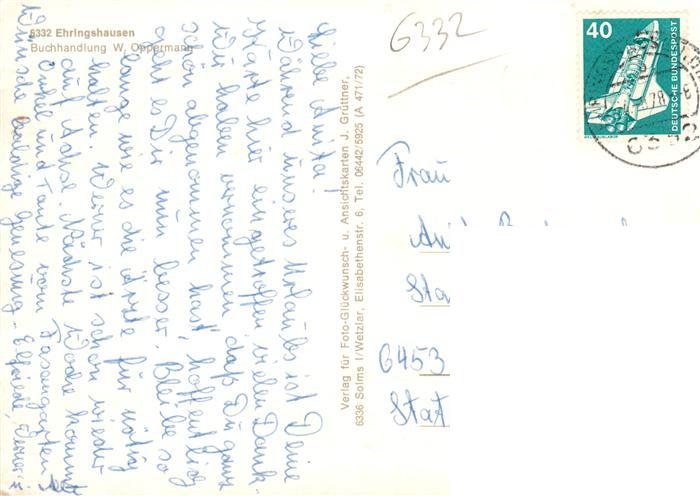 6332 Ehringshausen
Buchhandlung W. Oppermann
6332
40
DEUTSCHE BUNDESPOST
Liebe Anita!
Während unseres Urlaubs ist Deine
Karte hier eingetroffen, vielen Dank.
Wir haben vernommen, daß Du ganz
schön abgenommen hast, hoffentlich
geht es Dir nun besser, Bleibe so
lange wie es die Ärzte für nötig
halten. Werner ist schon wieder
auf Achse. Nächste Woche kommt
Onkel und Tante vom Fasangarten.
Wünsche baldige Genesung - Elfriede, Werner
Verlag für Foto-Glückwunsch- u. Ansichtskarten J. Grüttner,
6336 Solms I/Wetzlar, Elisabethenstr. 6, Tel. 06442/5925 (A 471/72)
Frau
6453